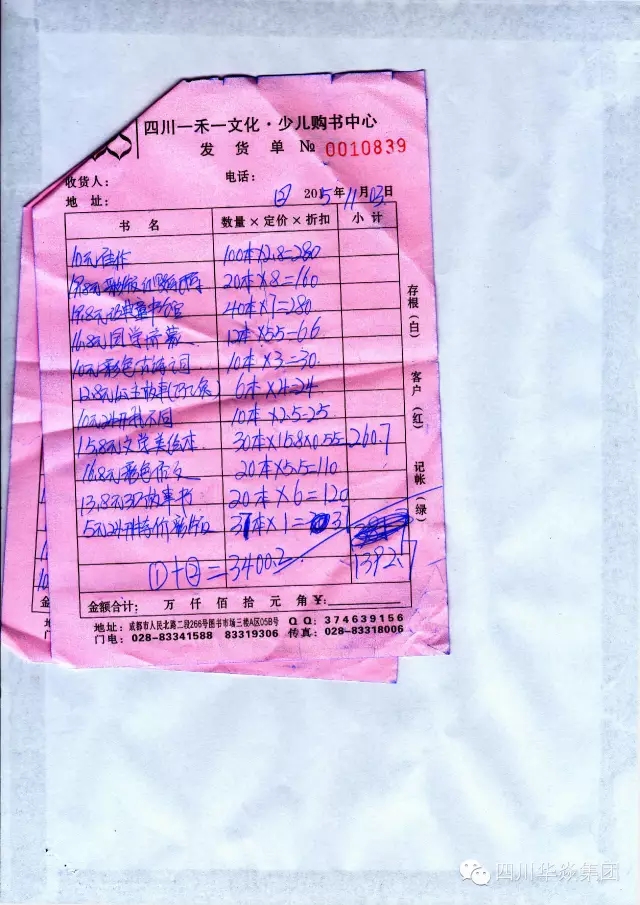 四川一禾一文化·少儿购书中心
发货单 № 0010839
收货人： 电话：
地址： ② 2015年11月03日
书名 数量×定价×折扣 小计
10元佳作 100本×2.8=280
19.8元彩版 20本×8=160
19.8元 40本×7=280
16.8元国学 12本×5.5=66
10元彩色 10本×3=30
12.8元公主故事 6本×4=24
10元24开 不同 10本×2.5=25
15.8元文学美绘本 30本×15.8×0.55=260.7
16.8元彩色作文 20本×5.5=110
13.8元3D故事书 20本×6=120
5元24开特价彩绘 37本×1= 31
①+②=3400.2 1392.7
存根（白）
客户（红）
记帐（绿）
金额合计： 万 仟 佰 拾 元 角 ¥：
地址：成都市人民北路二段266号图书市场三楼A区05B号 QQ：374639156
门电：028-83341588 83319306 传真：028-83318006
四川华焱集团